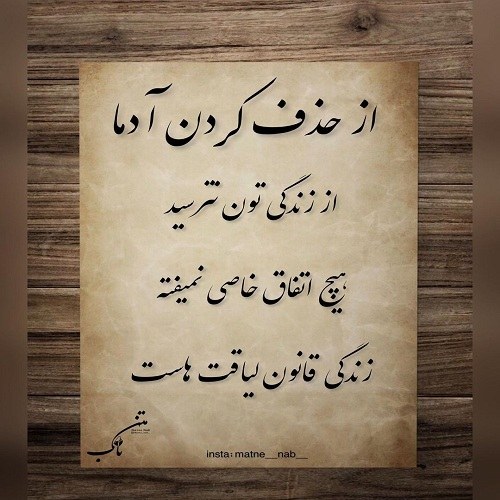 از حذف کردن آدما
از زندگی تون نترسید
هیچ اتفاق خاصی نمیفته
زندگی قانون لیاقت هاست
متن
ناب
insta: matne__nab__